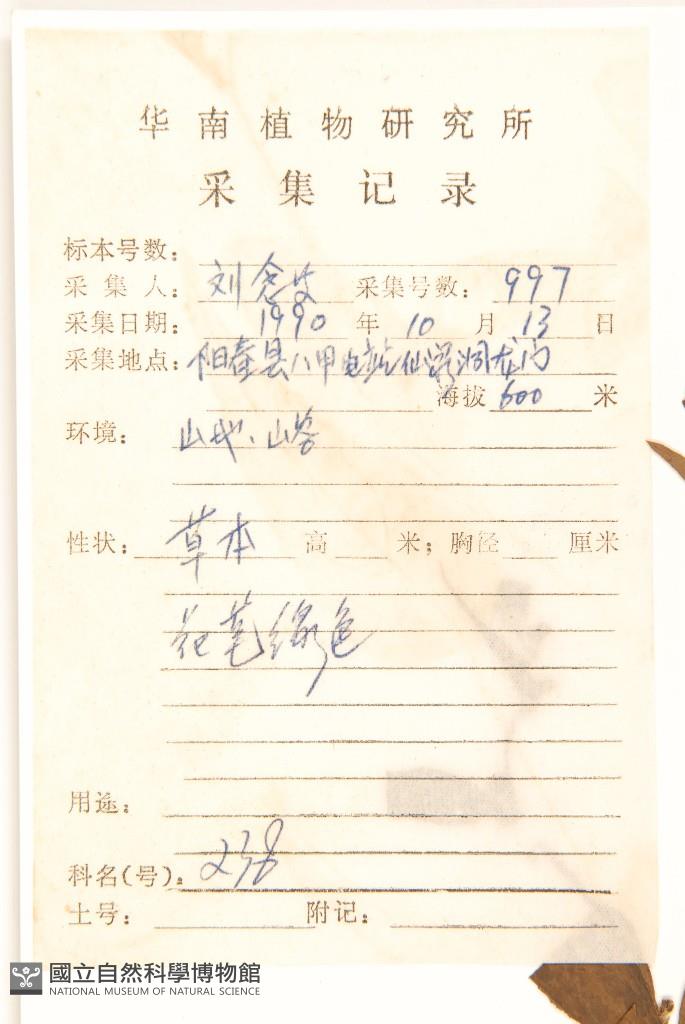 华南植物研究所
采集记录
标本号数:
采集人: 刘念 采集号数: 997
采集日期: 1990 年 10 月 13 日
采集地点: 阳春县八甲电站仙 洞龙门
海拔 600 米
环境: 山地、山谷
性状: 草本 高 米; 胸径 厘米
花 绿色
用途:
科名(号): 238
土号: 附记:
國立自然科學博物館
NATIONAL MUSEUM OF NATURAL SCIENCE